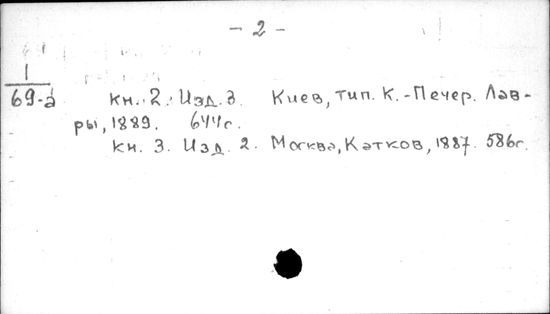 - 2 -
1
69-а
кн. 2. Изд. 3. Киев, тип. К.-Печер. Лав-
ры, 1889. 644с.
кн. 3. Изд. 2. Москва, Катков, 1887. 586с.